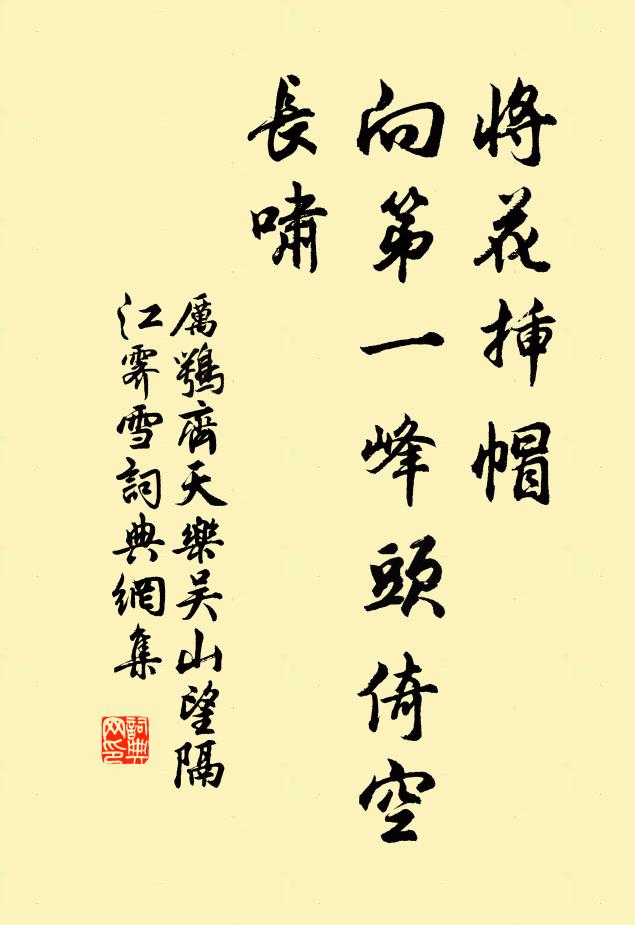 將花揷帽
向第一峰頭倚空
長嘯
厲鶚齊天樂吳山望隔
江霽雪詞典網集
詞典
网印